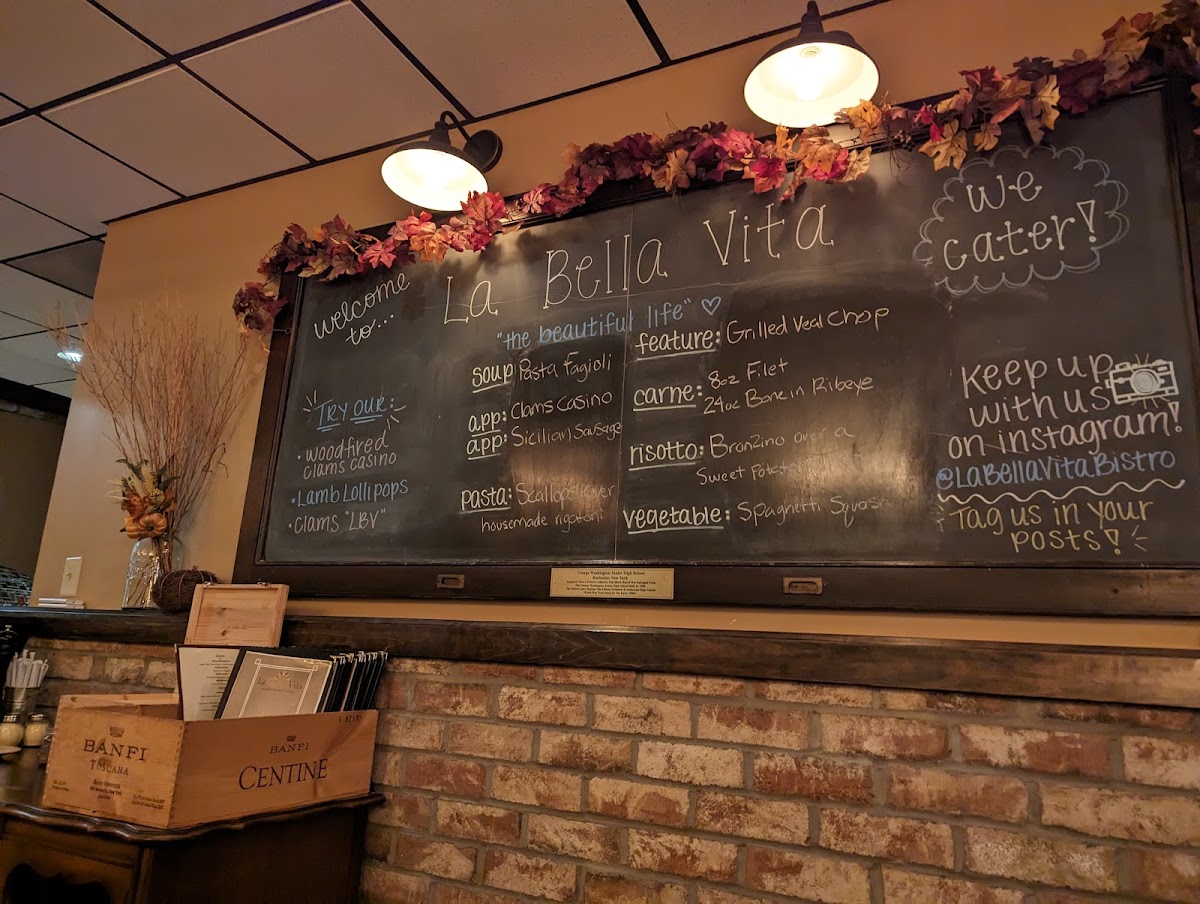 welcome
to...
La Bella Vita
"the beautiful life" ♡
We
cater!
TRY OUR:
• woodfired
clams casino
• Lamb Lollipops
• Clams "LBV"
soup Pasta Fagioli
app: Clams Casino
app: Sicilian Sausage
pasta: Scallops over
housemade rigatoni
feature: Grilled Veal Chop
carne: 8oz Filet
24oz Bone in Ribeye
risotto: Bronzino over a
Sweet
vegetable: Spaghetti Squash
Keep up
with us
on instagram!
@LaBellaVitaBistro
Tag us in your
posts!
George Washington Junior High School
Rochester, New York
La Vita
BANFI
TOSCANA
BANFI
CENTINE